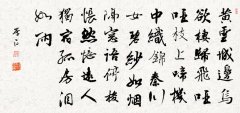 黃雲城邊烏
欲棲歸飛啞
啞枝上啼機
中織錦秦川
女碧紗如煙
隔窗語停梭
悵然憶遠人
獨宿孤房淚
如雨